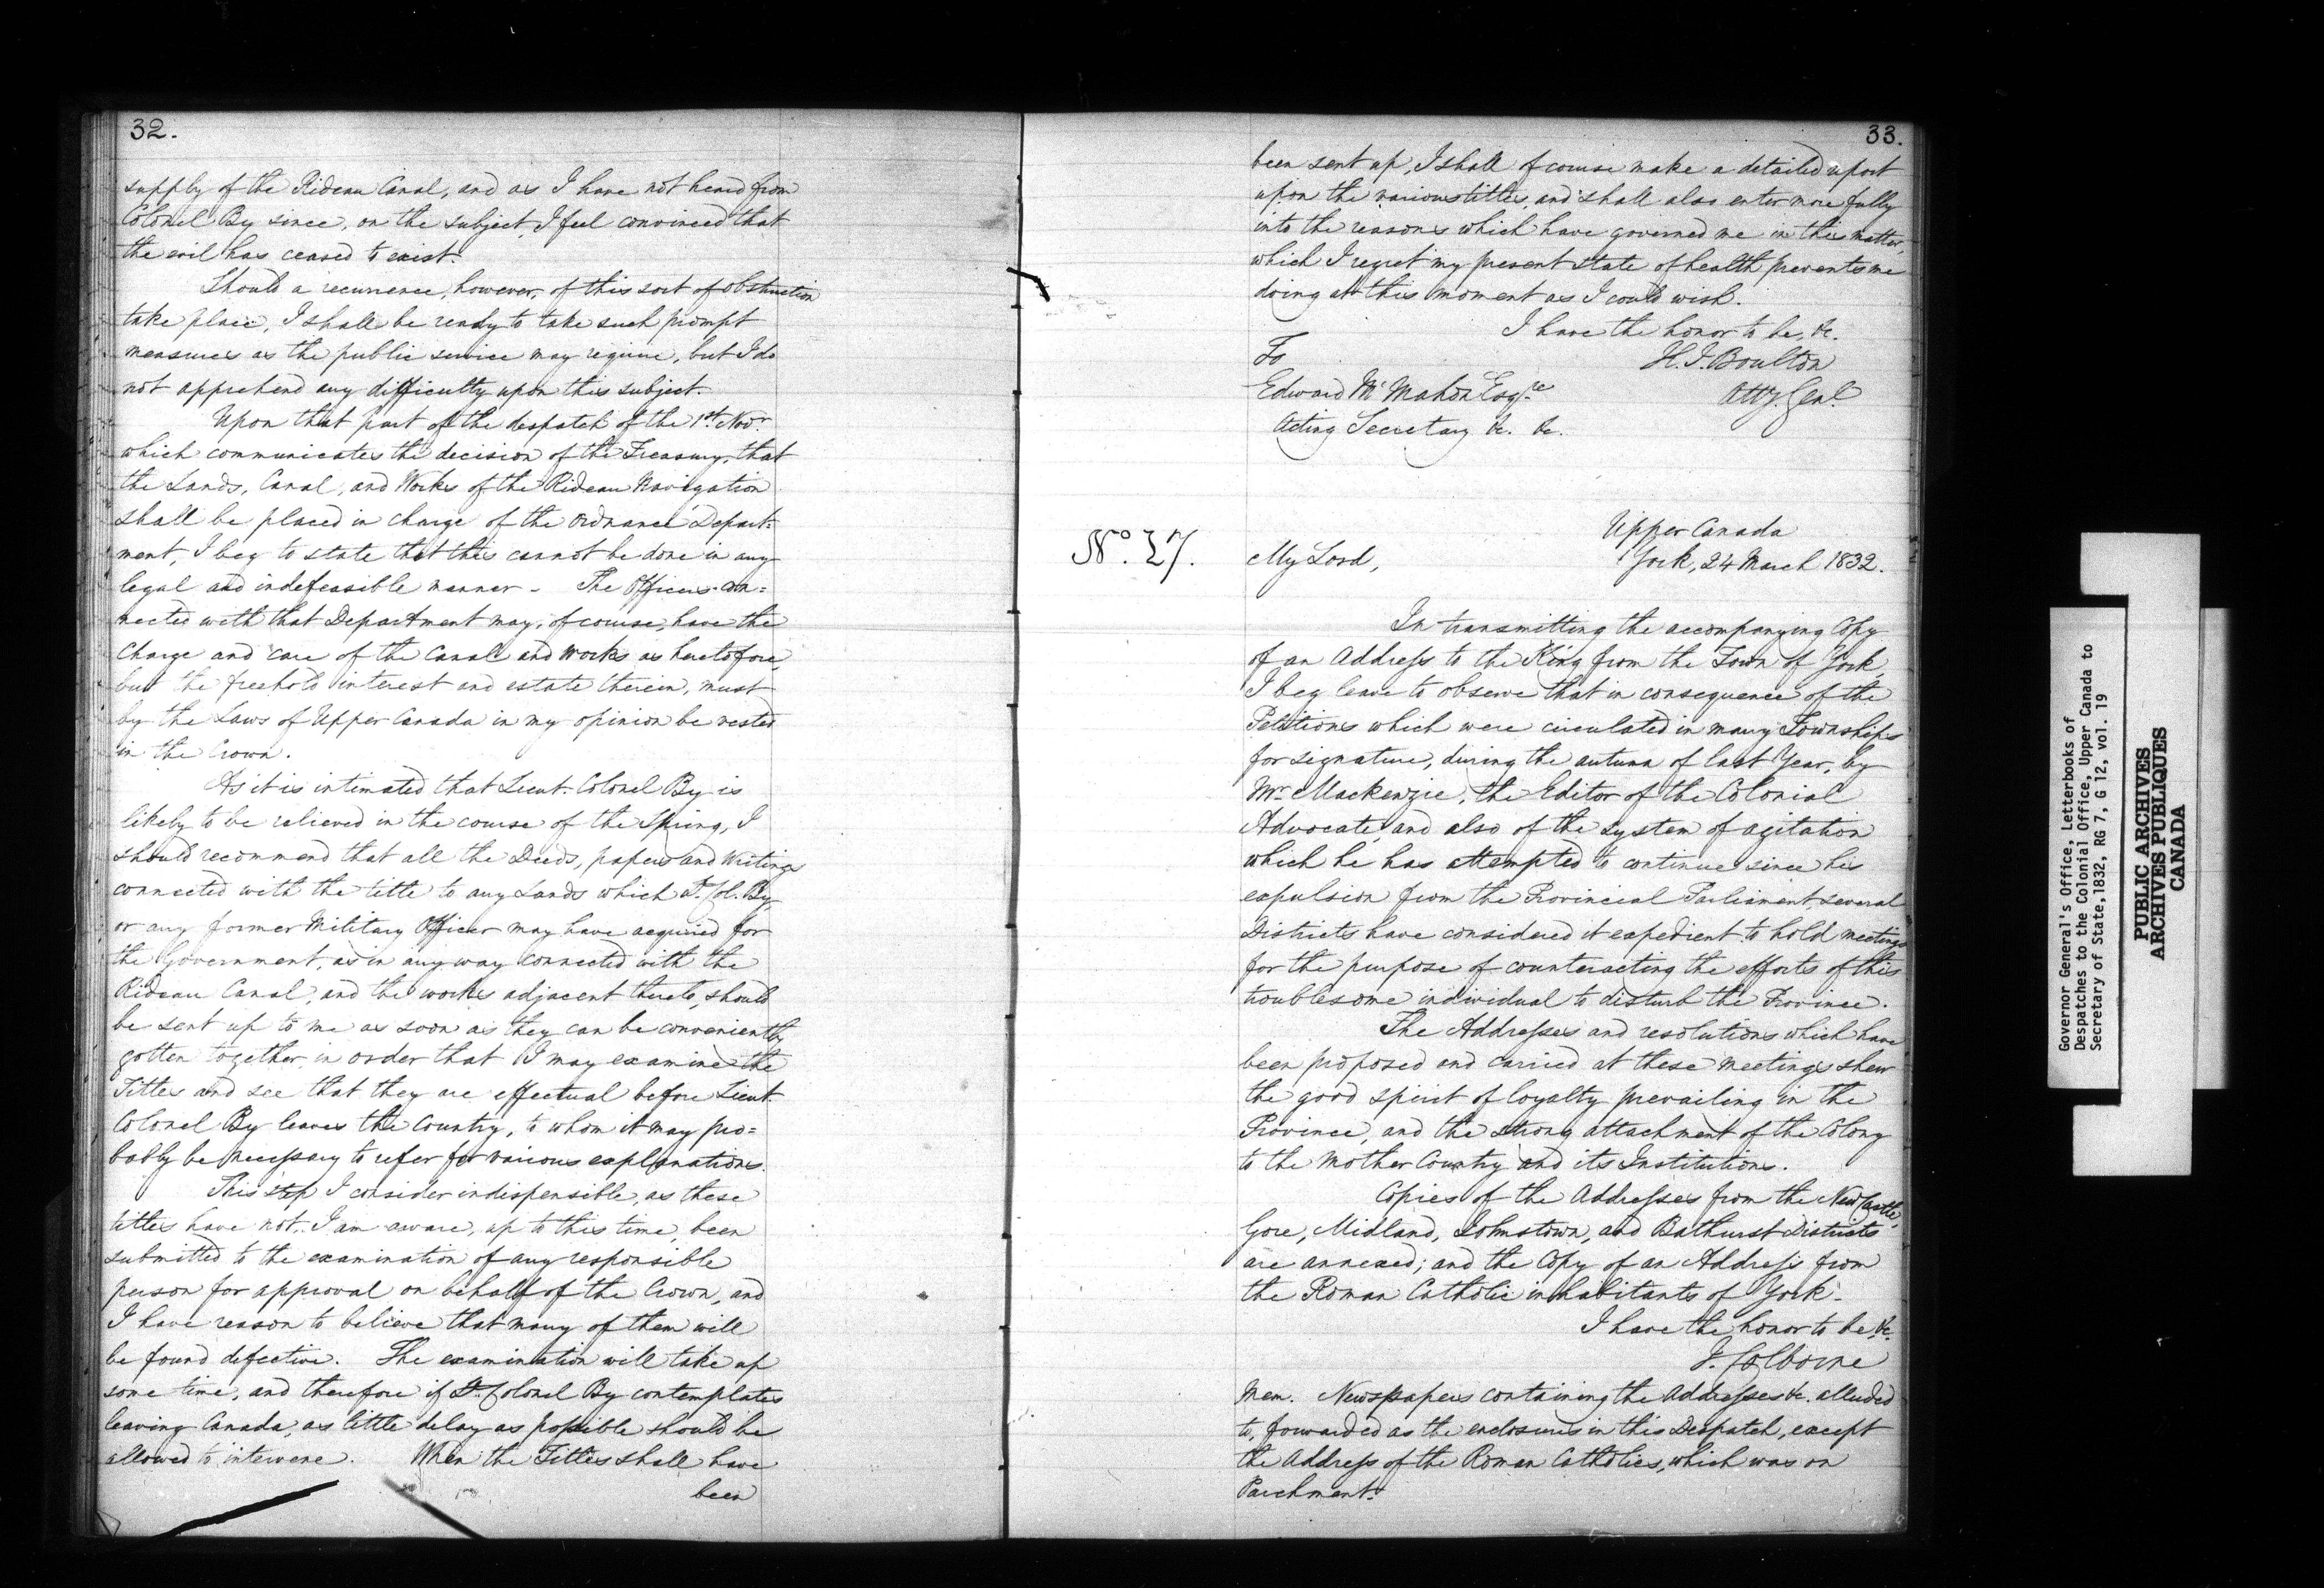 32.
supply of the Rideau Canal, and as I have not heard from
Colonel By since, on the subject, I feel convinced that
the evil has ceased to exist.
Should a recurrence, however, of this sort of obstruction
take place, I shall be ready to take such prompt
measures as the public service may require, but I do
not apprehend any difficulty upon this subject.
Upon that part of the despatch of the 1st. Novr.
which communicates the decision of the Treasury, that
the Lands, Canal, and Works of the Rideau Navigation
shall be placed in charge of the Ordnance Depart=
ment, I beg to state that this cannot be done in any
legal and indefeasible manner - The Officers con=
nected with that Department may, of course, have the
Charge and care of the Canal and Works as heretofore,
but the freehold interest and estate therein, must
by the Laws of Upper Canada in my opinion be vested
in the Crown.
As it is intimated that Lieut. Colonel By is
likely to be relieved in the course of the Spring, I
should recommend that all the Deeds, papers and Writings
connected with the title to any Lands which Lt. Col. By,
or any former Military Officer may have acquired for
the Government, as in any way connected with the
Rideau Canal, and the works adjacent thereto, should
be sent up to me as soon as they can be conveniently
gotten together, in order that I may examine the
Titles and see that they are effectual before Lieut.
Colonel By leaves the Country, to whom it may pro=
bably be necessary to refer for various explanations.
This step I consider indispensible, as these
titles have not, I am aware, up to this time, been
submitted to the examination of any responsible
person for approval on behalf of the Crown, and
I have reason to believe that many of them will
be found defective. The examination will take up
some time, and therefore if Lt. Colonel By contemplates
leaving Canada, as little delay as possible should be
allowed to intervene. When the Titles shall have
been
33.
been sent up, I shall of course make a detailed report
upon the various titles, and shall also enter more fully
into the reasons which have governed me in this matter,
which I regret my present state of health prevents me
doing at this moment as I could wish.
I have the honor to be, &c.
To
H. J. Boulton
Edward McMahon Esqre.
Atty. Genl.
Acting Secretary &c. &c.
Upper Canada
No. 27.
My Lord,
York, 24 March 1832.
In transmitting the accompanying Copy
of an Address to the King from the Town of York,
I beg leave to observe that in consequence of the
Petitions which were circulated in many Townships
for signature, during the autumn of last Year, by
Mr. Mackenzie, the Editor of the Colonial
Advocate, and also of the system of agitation
which he has attempted to continue since his
expulsion from the Provincial Parliament, several
Districts have considered it expedient to hold meetings
for the purpose of counteracting the efforts of this
troublesome individual to disturb the Province.
The Addresses and resolutions which have
been proposed and carried at these meetings shew
the good spirit of loyalty prevailing in the
Province, and the strong attachment of the Colony
to the Mother Country and its Institutions.
Copies of the Addresses from the NewCastle,
Gore, Midland, Johnstown, and Bathurst Districts
are annexed; and the Copy of an Address from
the Roman Catholic inhabitants of York.
I have the honor to be, &c.
J. Colborne
Mem. Newspapers containing the Addresses &c. alluded
to, forwarded as the enclosures in this Despatch, except
the Address of the Roman Catholics, which was on
Parchment.
Governor General's Office, Letterbooks of
Despatches to the Colonial Office, Upper Canada to
Secretary of State, 1832, RG 7, G 12, vol. 19
PUBLIC ARCHIVES
ARCHIVES PUBLIQUES
CANADA